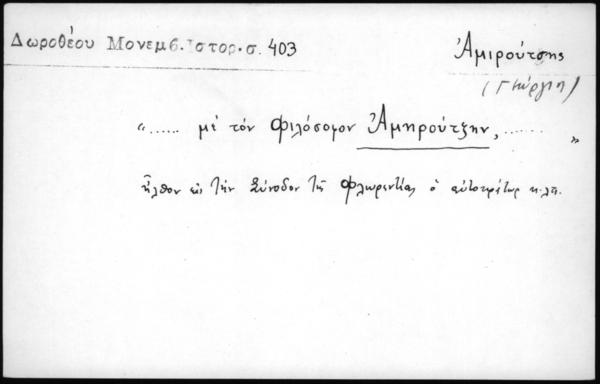 Δωροθέου Μονεμβ. Ιστορ. σ. 403
Ἀμιρούτσης
(Γεώργιος)
"...... μὲ τὸν φιλόσοφον Ἀμηρούτζην, ....... "
ἦλθον εἰς τὴν Σύνοδον τῆς Φλωρεντίας ὁ αὐτοκράτωρ κ.λπ.